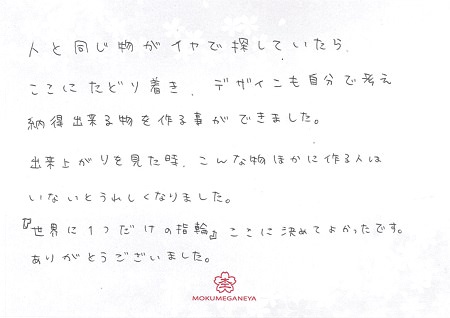 人と同じ物がイヤで探していたら、
ここにたどり着き、デザインも自分で考え
納得出来る物を作る事ができました。
出来上がりを見た時、こんな物ほかに作る人は
いないとうれしくなりました。
『世界に1つだけの指輪』ここに決めてよかったです。
ありがとうございました。
MOKUMEGANEYA